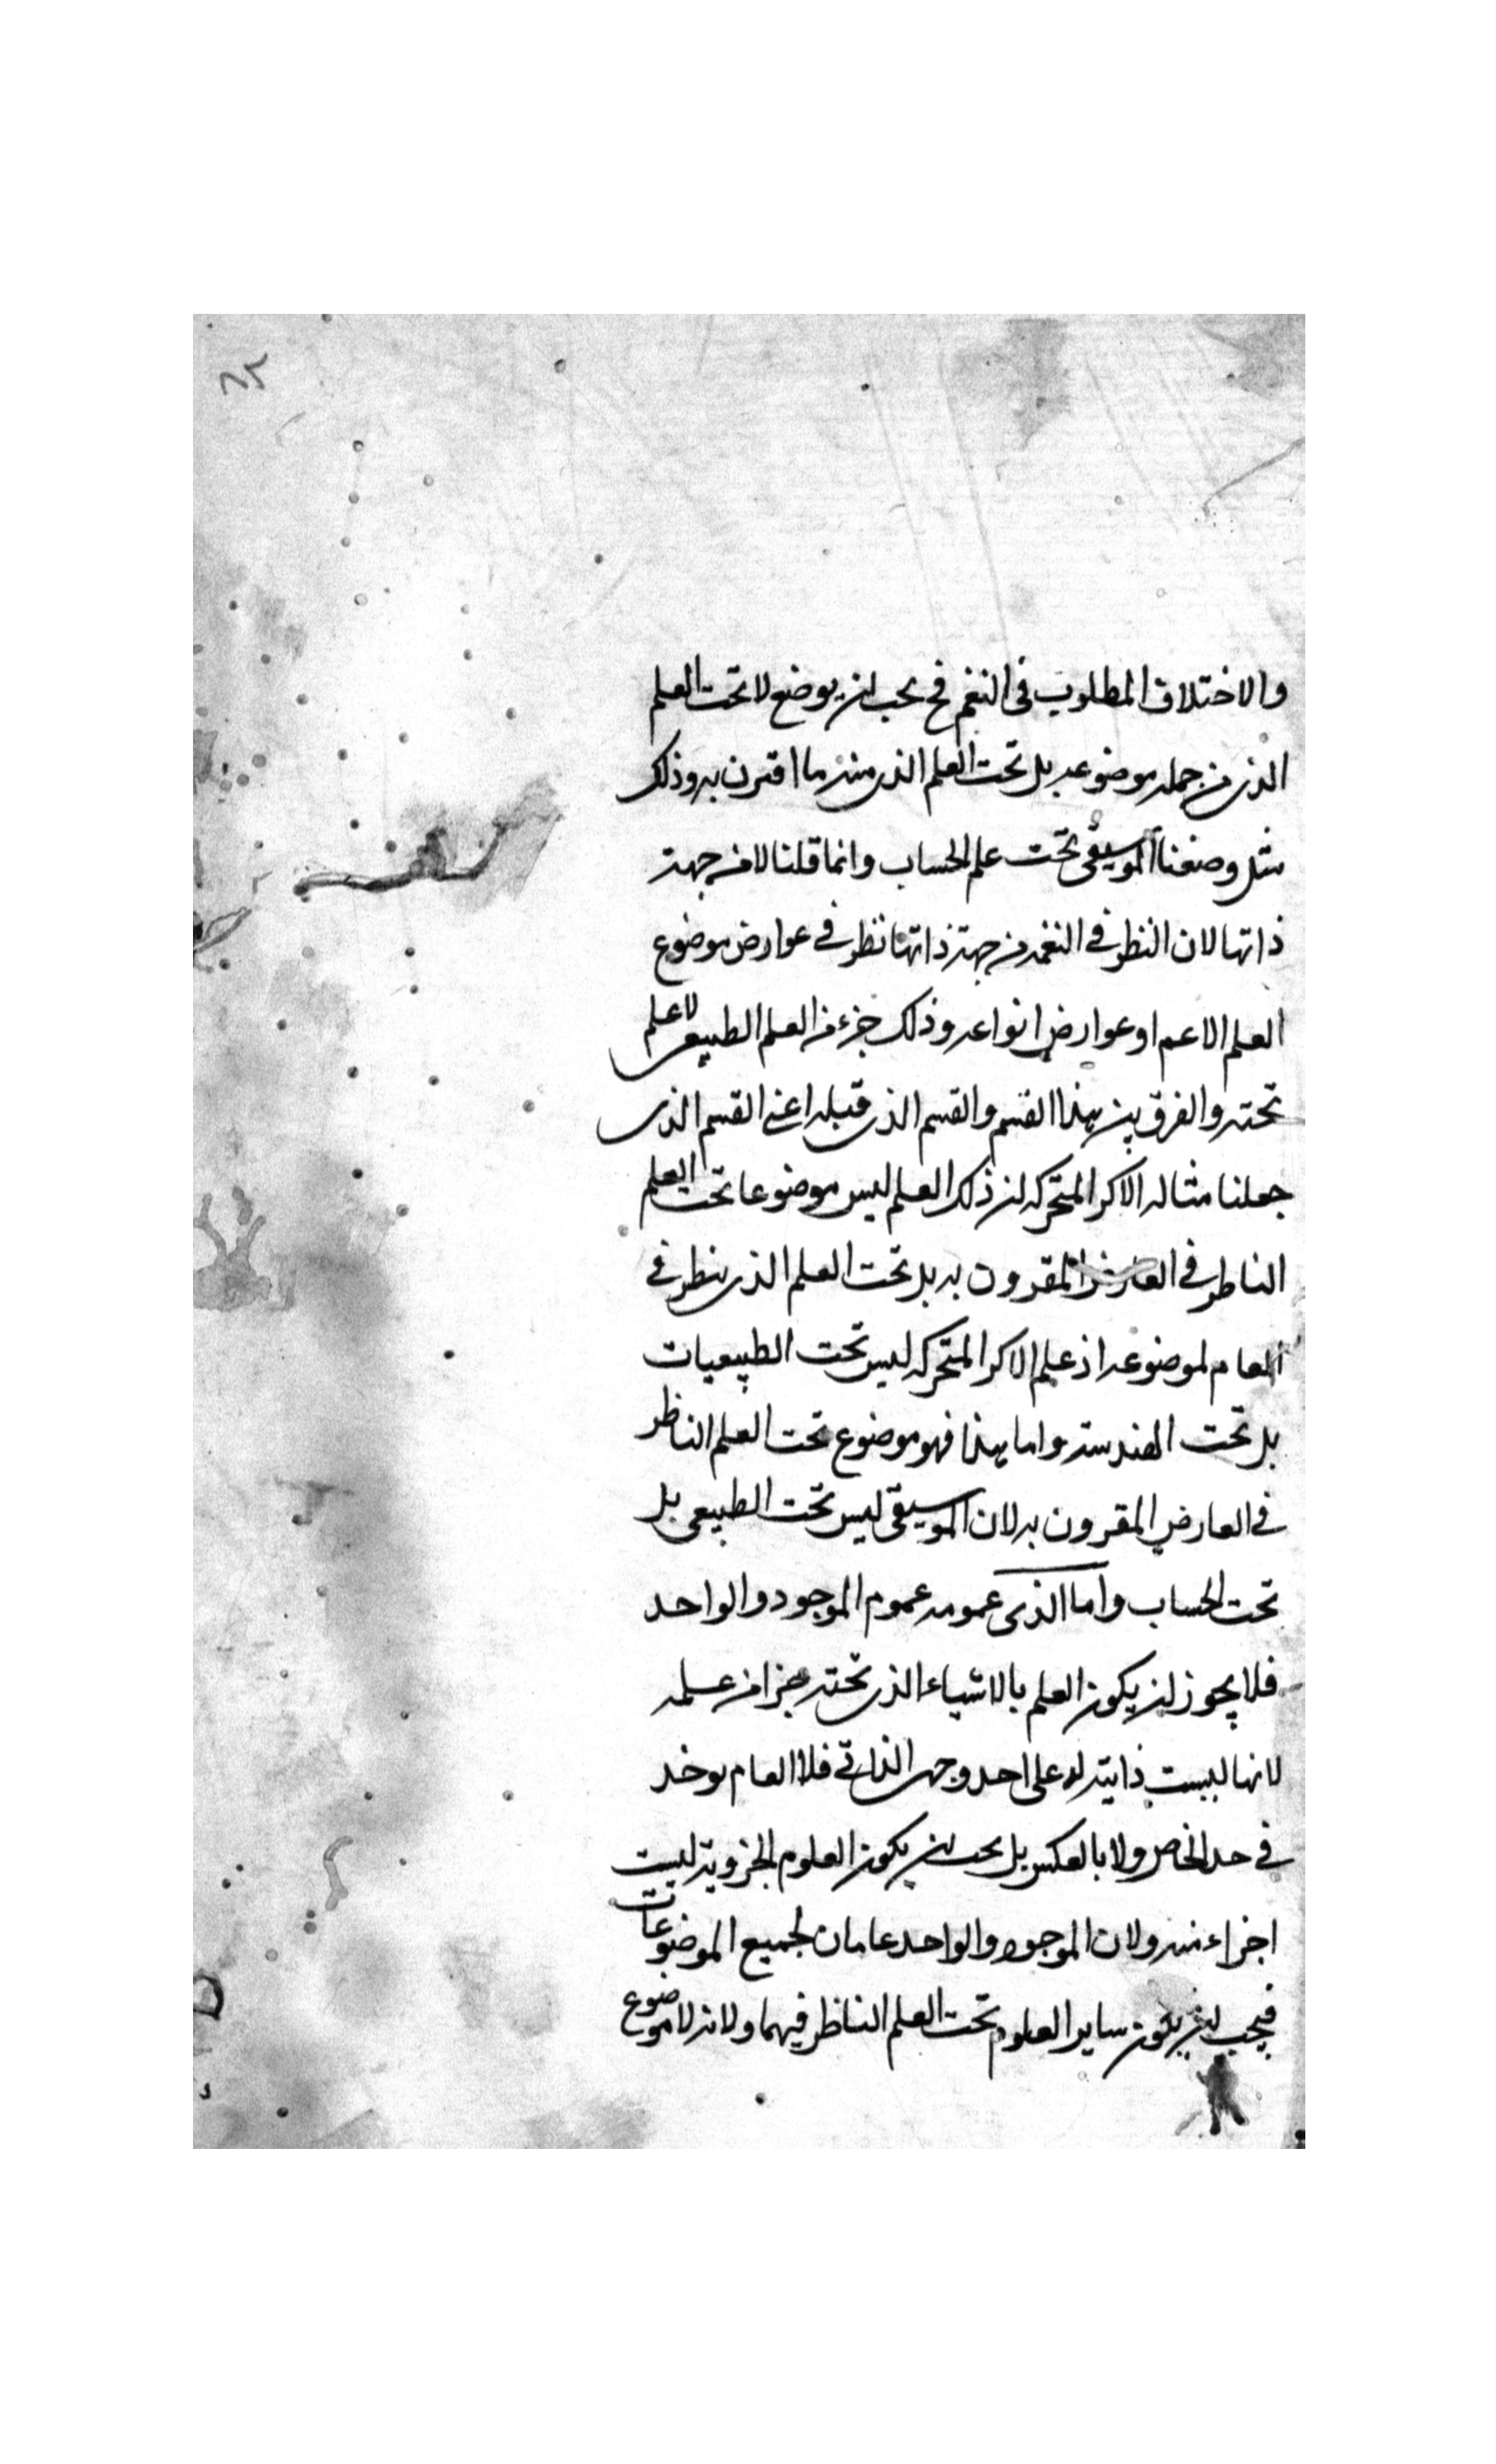 ٦٥
والاختلاف المطلوب فى النغم فح يجب ان يوضع لا تحت العلم
الذى من جمله موضوعه بل تحت العلم الذى منه ما اقترن به وذلك
مثل وضعنا الموسيقى تحت علم الحساب وانما قلنا لا من جهة
ذاتها لان النظر فى النغمه من جهة ذاتها نظر فى عوارض موضوع
العلم الاعم او عوارض انواعه وذلك جزء من العلم الطبيعى لا علم
تحته والفرق بين هذا القسم والقسم الذى قبله اعنى القسم الذى
جعلنا مثاله الاكر المتحركه ان ذلك العلم ليس موضوعا تحت العلم
الناظر فى العارض المقرون به بل تحت العلم الذى ينظر فى
العام لموضوعه اذ علم الاكر المتحركه ليس تحت الطبيعيات
بل تحت الهندسة واما هذا فهو موضوع تحت العلم الناظر
فى العارض المقرون به لان الموسيقى ليس تحت الطبيعى بل
تحت الحساب واما الذى عمومه عموم الموجود والواحد
فلا يجوز ان يكون العلم بالاشياء الذى تحته جزا من علمه
لانها ليست ذاتية له على احد وجهى الذاتى فلا العام يوخد
فى حد الخاص ولا بالعكس بل يجب ان يكون العلوم الجزوية ليست
اجزاء منه ولان الموجود والواحد عامان لجميع الموضوعات
فيجب ان يكون ساير العلوم تحت العلم الناظر فيهما ولانه لا موضوع